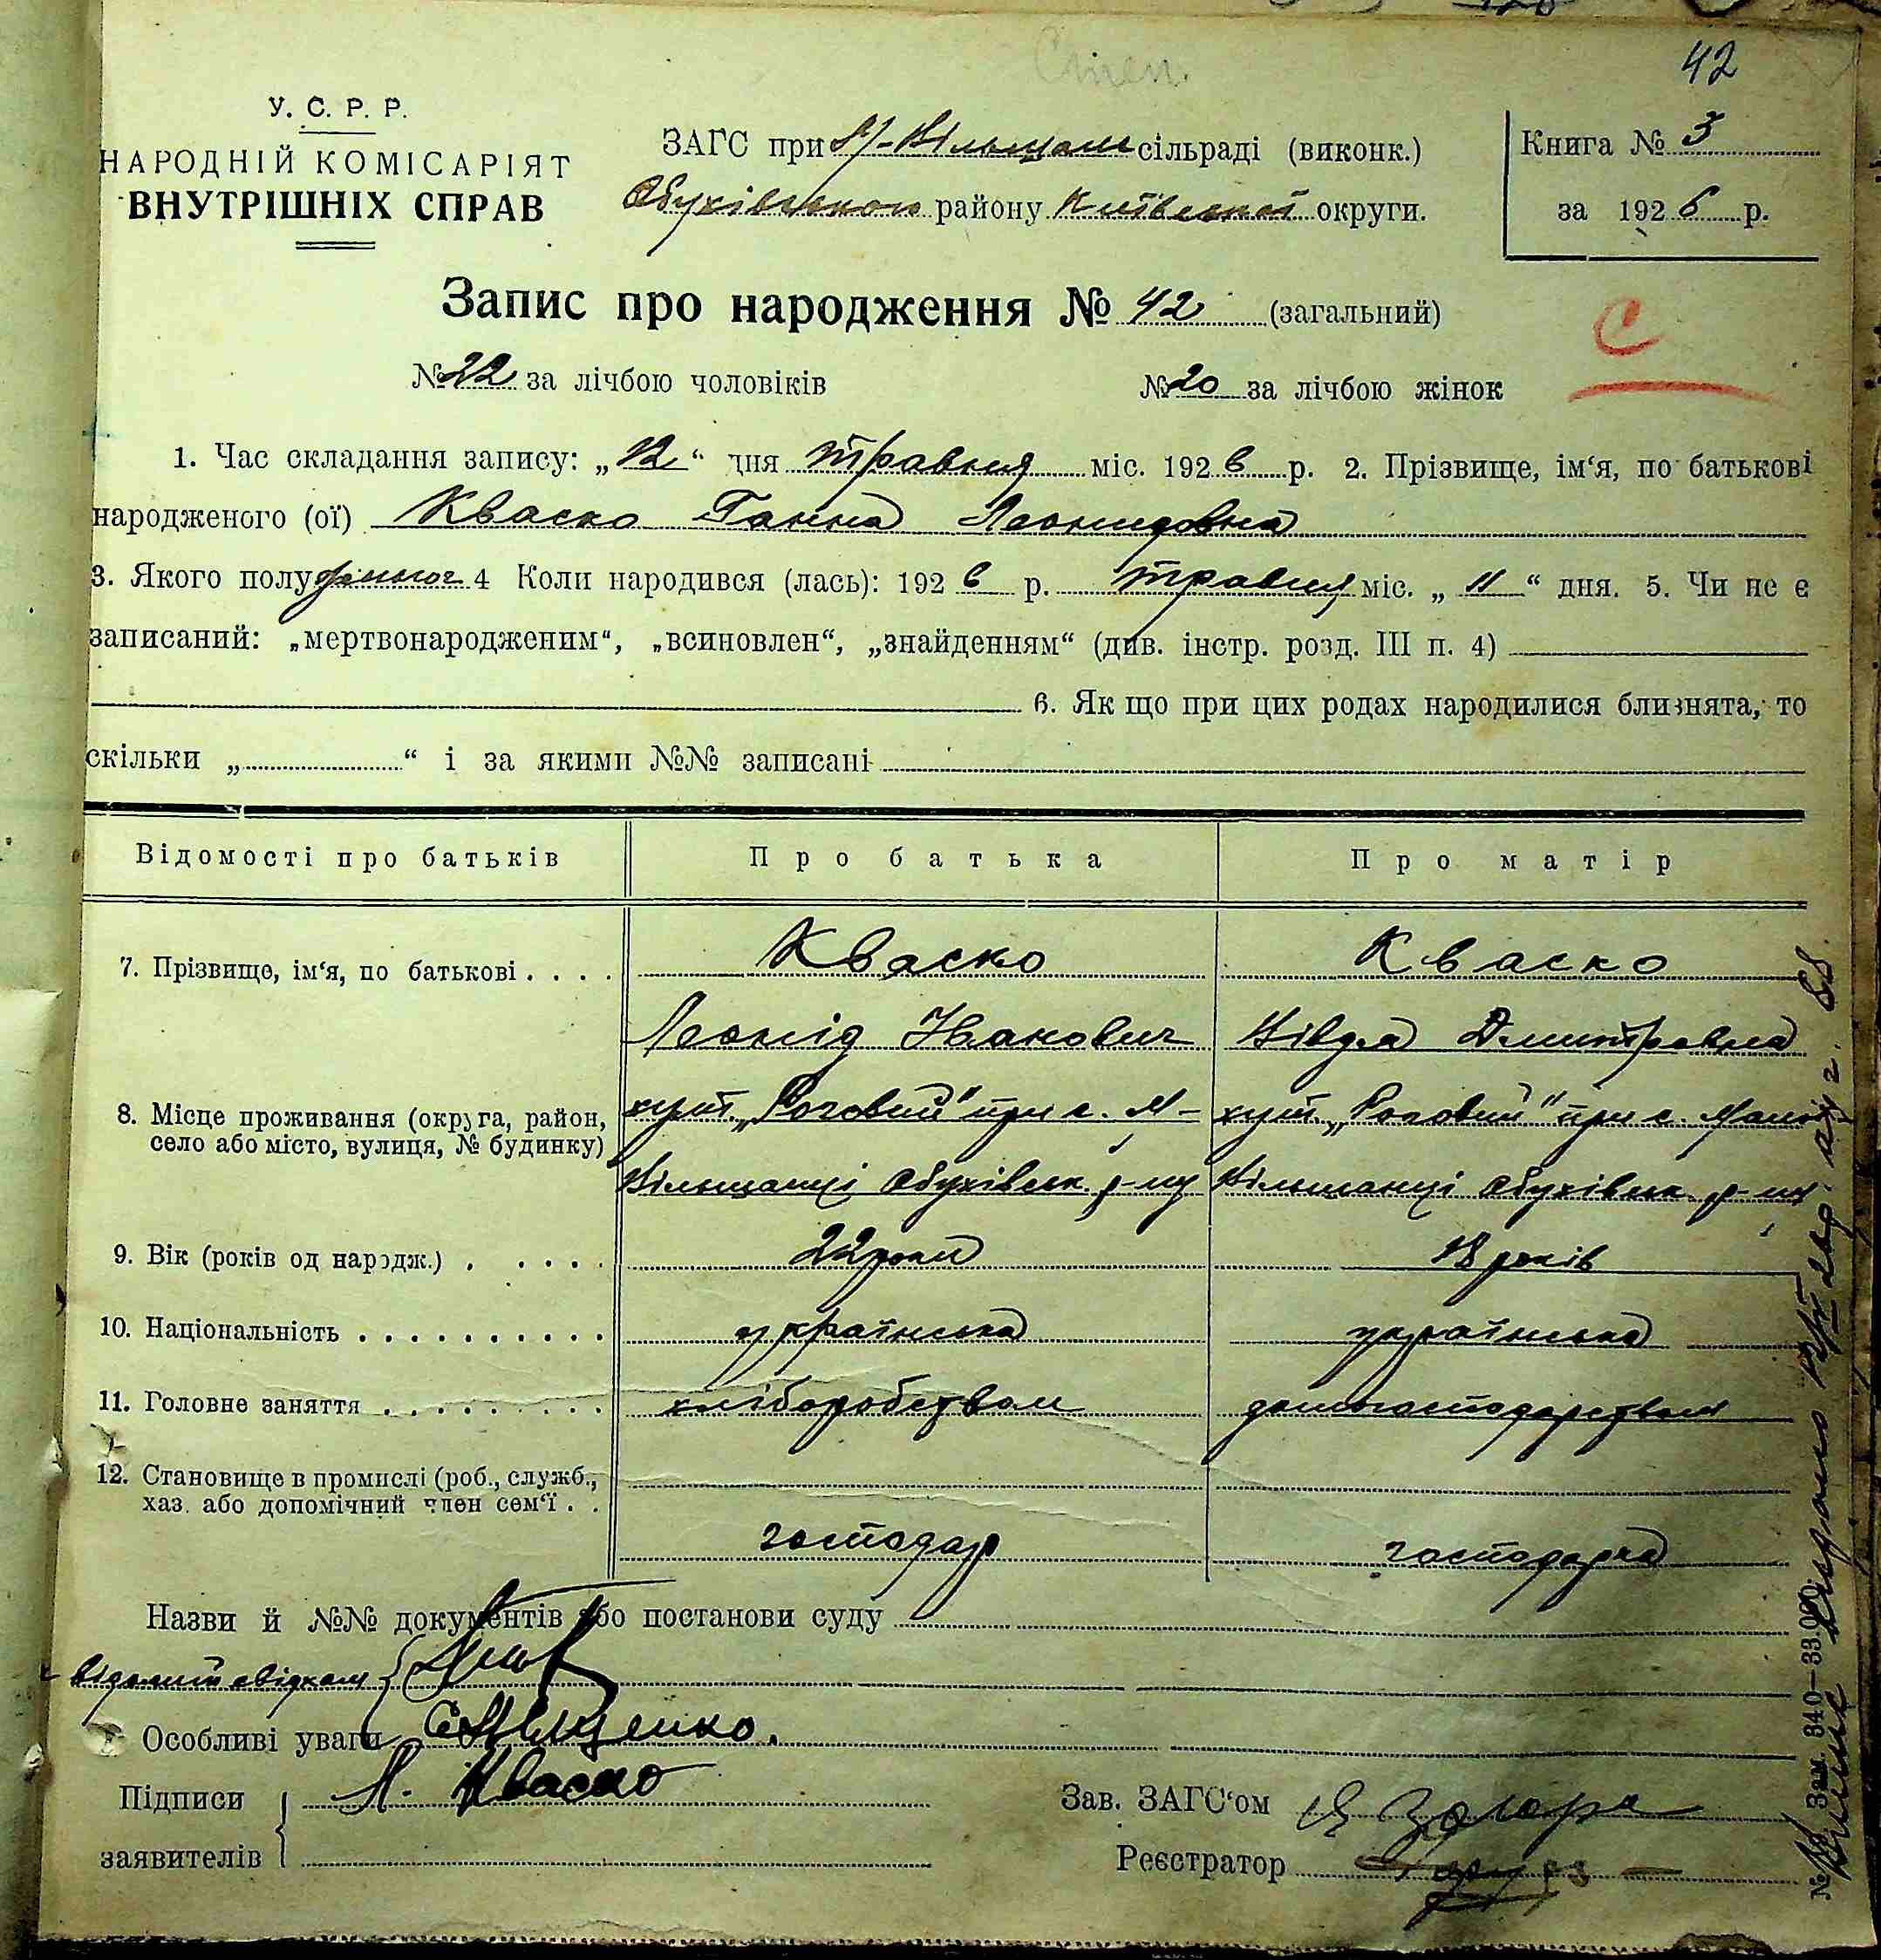 42
У. С. Р. Р.
НАРОДНІЙ КОМІСАРІЯТ
ВНУТРІШНІХ СПРАВ
ЗАГС при М-Вільщан сільраді (виконк.)
Обухівського району Київської округи.
Книга № 3
за 1926 р.
Запис про народження № 42 (загальний)
С
№ 22 за лічбою чоловіків № 20 за лічбою жінок
1. Час складання запису: „12“ дня травня міс. 1926 р. 2. Прізвище, ім‘я, по батькові
народженого (ої) Кваско Ганна Леонидовна
3. Якого полу жіночог 4 Коли народився (лась): 1926 р. травня міс. „11“ дня. 5. Чи не є
записаний: „мертвонародженим“, „всиновлен“, „знайденням“ (див. інстр. розд. III п. 4)
6. Як що при цих родах народилися близнята, то
скільки „ “ і за якими №№ записані
Відомості про батьків Про батька Про матір
7. Прізвище, ім‘я, по батькові . . . . Кваско Кваско
Леонід Іванович Вівдя Дмитровна
8. Місце проживання (округа, район, село або місто, вулиця, № будинку)
хут. „Роговий“ при с. М- хут. „Роговий“ при с. Малій
Вільщанці Обухівськ. р-ну Вільшанці Обухівськ р-ну
9. Вік (років од народж.) . . . . . 22 роки 18 років
10. Національність . . . . . . . . . . українська українська
11. Головне заняття . . . . . . . . . хліборобством домогосподарством
12. Становище в промислі (роб., служб.,
хаз. або допомічний член сем‘ї . .
господар господарка
Назви й №№ документів або постанови суду
відомий свідкам
Особливі уваги
Підписи Л. Кваско
заявителів
Зав. ЗАГС‘ом
Реєстратор
№ Зам. 340—33.000.